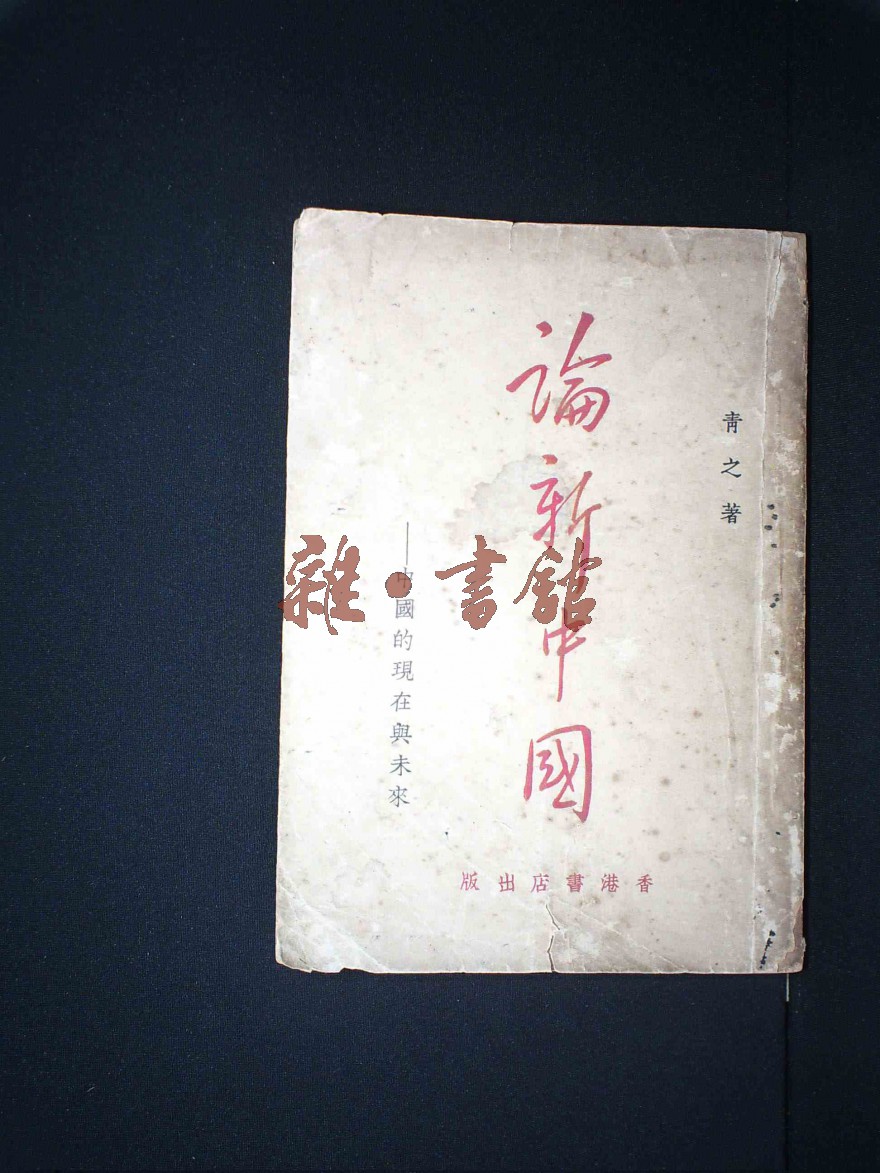 青之著
論新中國
——中國的現在與未來
香港書店出版
雜·書館